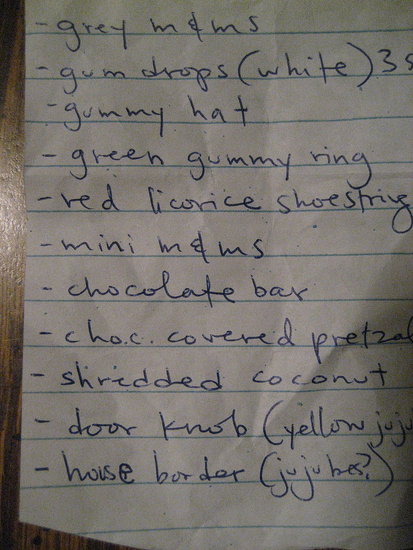 - grey m & ms
- gum drops (white) 3s
- gummy hat
- green gummy ring
- red licorice shoestring
- mini m & ms
- chocolate bar
- choc. covered pretzal
- shredded coconut
- door knob (yellow juju
- house border (jujubes?)